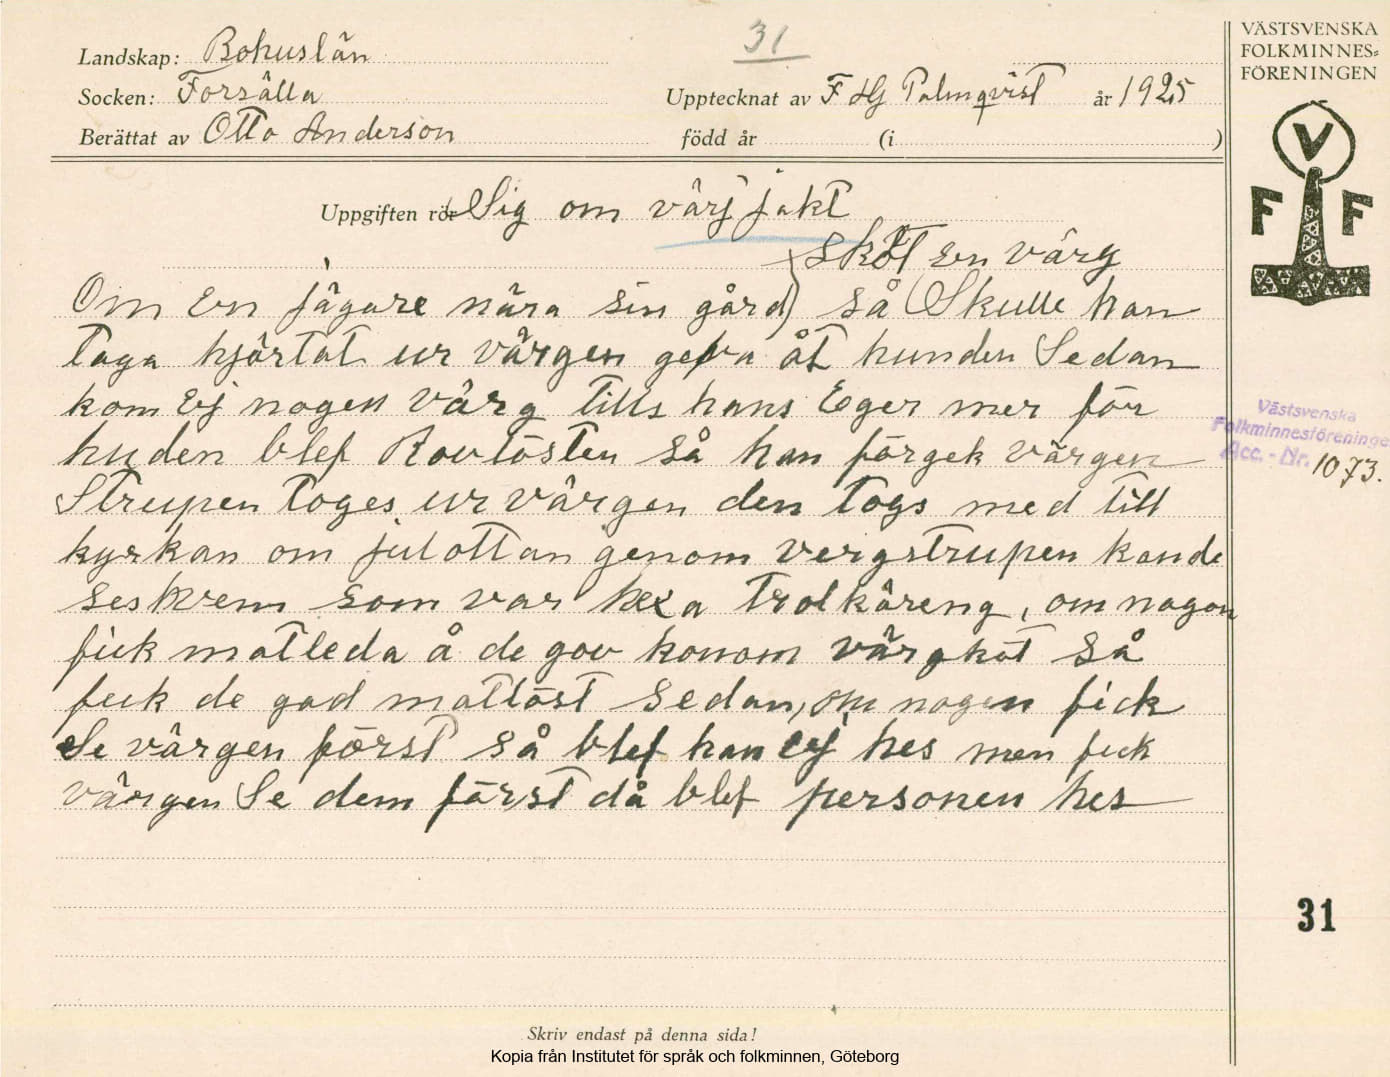 31
Landskap: Bohuslän
Socken: Forsälla
Upptecknat av F HJ Palmqvist år 1925
Berättat av Otto Anderson född år (i )
Uppgiften rör Sig om värj jakt
sköt En värg
Om En jägare nära sin gård) så Skulle han
taga hjärtat ur värgen gefva åt hunden Sedan
kom Ej nogen värg tills hans Eger mer för
huden blef Rovlösten så han förgek värgen
Strupen toges ur värgen den togs med till
kyrkan om julottan genom vergstrupen kande
ses vem som var hexa trolkäreng, om nagon
fick matleda å de gov honom värgköt så
feck de god matlöst Sedan, om nagen fick
Se värgen först så blef han ej hes men feck
värgen Se dem först då blef personen hes
Skriv endast på denna sida!
Kopia från Institutet för språk och folkminnen, Göteborg
VÄSTSVENSKA
FOLKMINNES-
FÖRENINGEN
V
F F
Västsvenska
Folkminnesföreningen
Acc. - Nr. 1073.
31